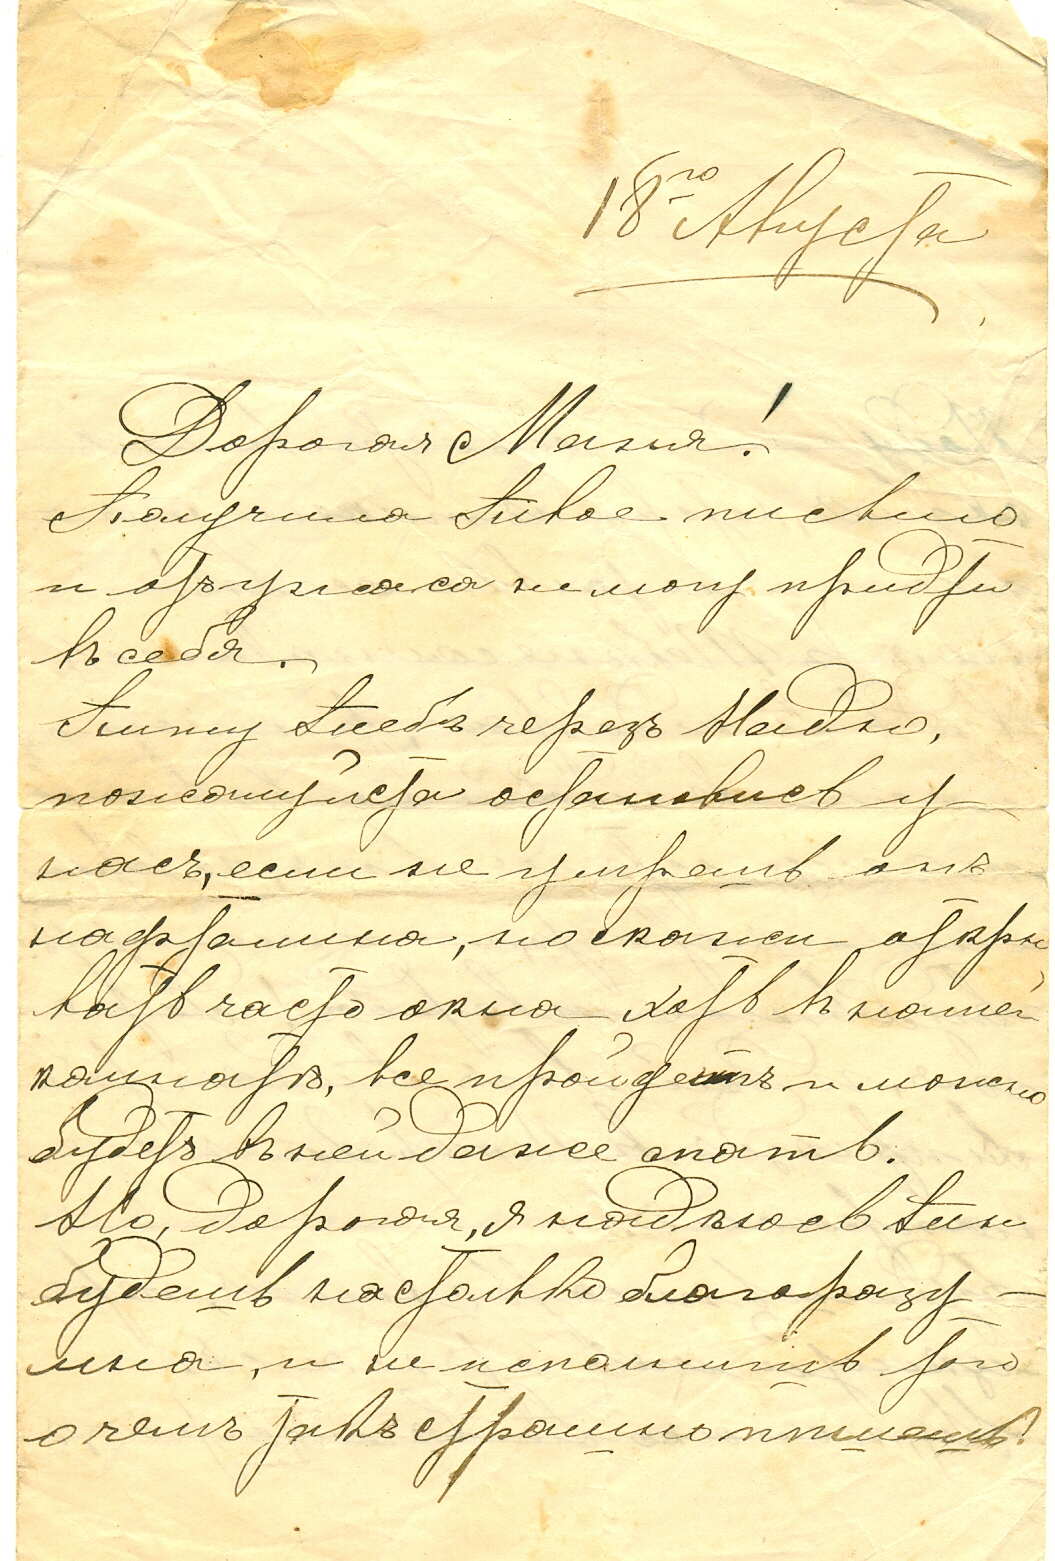 18го Августа
Дорогая Маня!
Получила твое письмо
и отъ ужаса не могу придти
въ себя.
Пишу тебѣ черезъ Надю,
пожалуйста остановись у
насъ, если не умрешь отъ
нафталина, но скажи откры
вать часто окна хоть въ нашей
комнатѣ, все пройдетъ и можно
будетъ въ ней даже спать.
Но, дорогая, я надѣюсь ты
будешь настолько благоразу-
мна, и не исполнишь того
о чемъ такъ страшно пишешь!